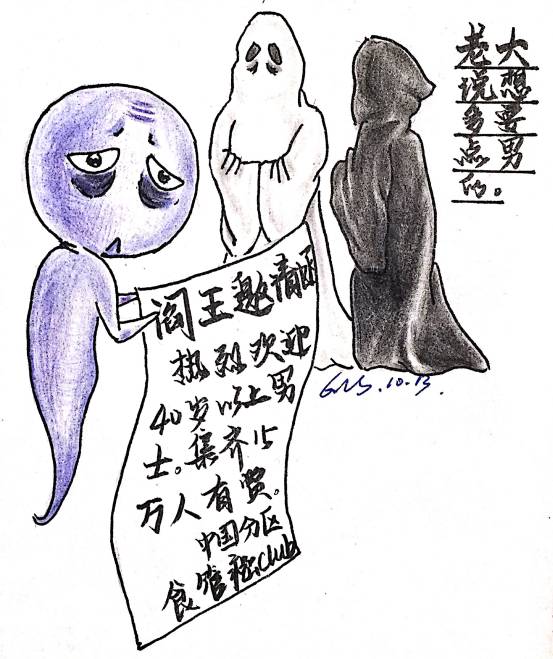 老大
说想
多要
点男
的。
阎王邀请函
热烈欢迎
40岁以上男
士。集齐15
万人有赏。
中国分区
食管癌club
10.13.